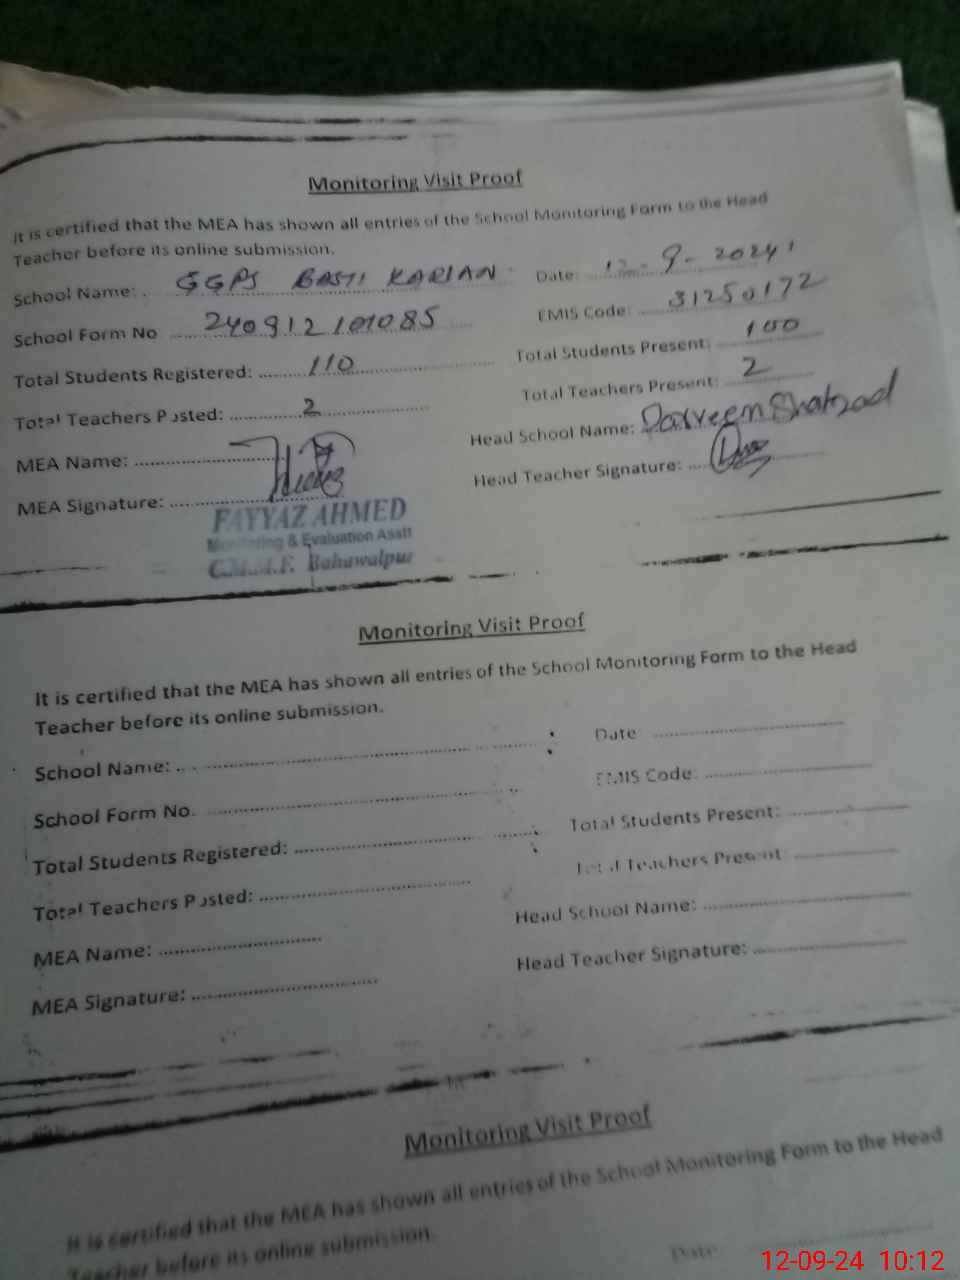 Monitoring Visit Proof
It is certified that the MEA has shown all entries of the School Monitoring Form to the Head
Teacher before its online submission.
School Name: GGPS BASTI KARIAN Date: 12-9-2024
School Form No 240912101085 EMIS Code: 31250172
Total Students Registered: 110 Total Students Present: 100
Total Teachers Posted: 2 Total Teachers Present: 2
MEA Name: Head School Name: Parveen Shahzad
MEA Signature: Head Teacher Signature:
FAYYAZ AHMED
Monitoring & Evaluation Asstt
Bahawalpur
Monitoring Visit Proof
It is certified that the MEA has shown all entries of the School Monitoring Form to the Head
Teacher before its online submission.
School Name: Date
School Form No. EMIS Code:
Total Students Registered: Total Students Present:
Total Teachers Posted: Total Teachers Present:
MEA Name: Head School Name:
MEA Signature: Head Teacher Signature:
Monitoring Visit Proof
It is certified that the MEA has shown all entries of the School Monitoring Form to the Head
Teacher before its online submission.
Date
12-09-24 10:12